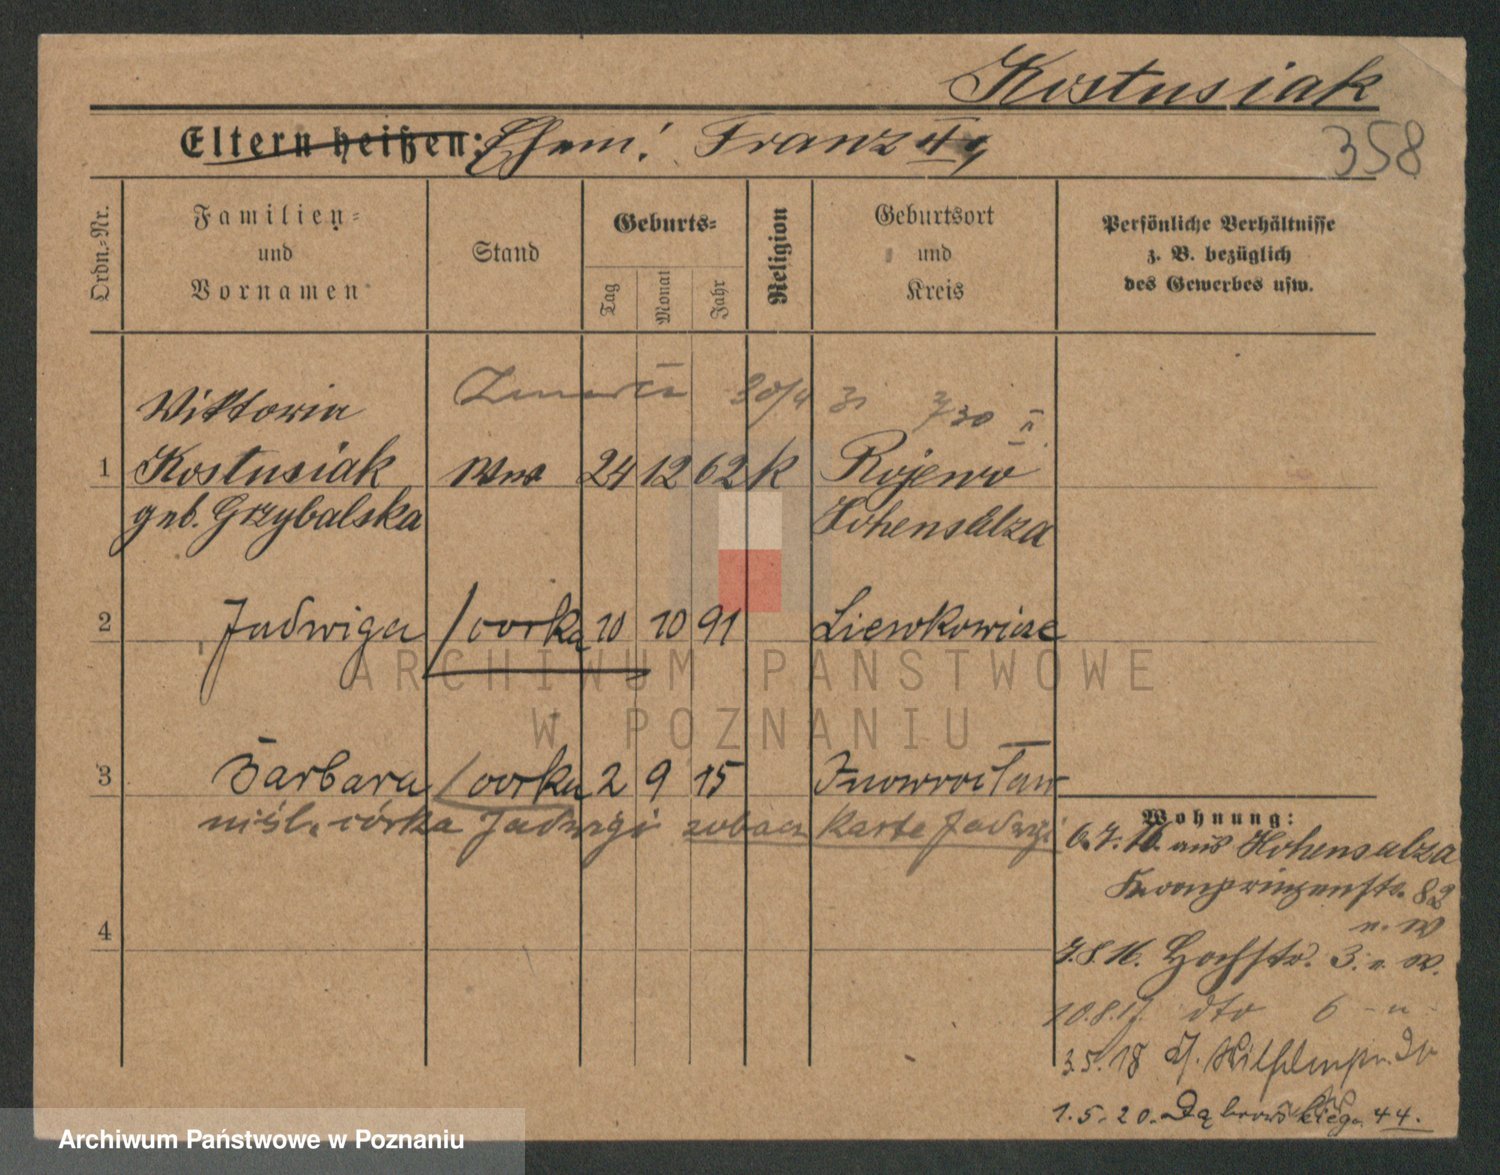 Kostusiak
358
Eltern heißen: Ehem: Franz
Ordn.-Nr.
Familien- und Vornamen
Stand
Geburts-
Tag
Monat
Jahr
Religion
Geburtsort und Kreis
Persönliche Verhältnisse
z. B. bezüglich
des Gewerbes usw.
Zmarła 30/4 31
Viktoria
1 Kostusiak Ww 24 12 62 k Rojewo
geb. Grzybalska Hohensalza
2 Jadwiga córka 10 10 91 Liewkowicze
3 Barbara córka 2 9 15 Inowrocław
niśl. córka Jadwigi zobacz karte Jadwigi
4
Wohnung:
6.7.16. aus Hohensalza
Kronprinzenstr. 82
n. W
7.8.16. Hochstr. 3. n. W.
10.8.17. dto 6 - n -
3.5.18
1.5.20. Dąbrowskiego 44.
ARCHIWUM PAŃSTWOWE
W POZNANIU
Archiwum Państwowe w Poznaniu